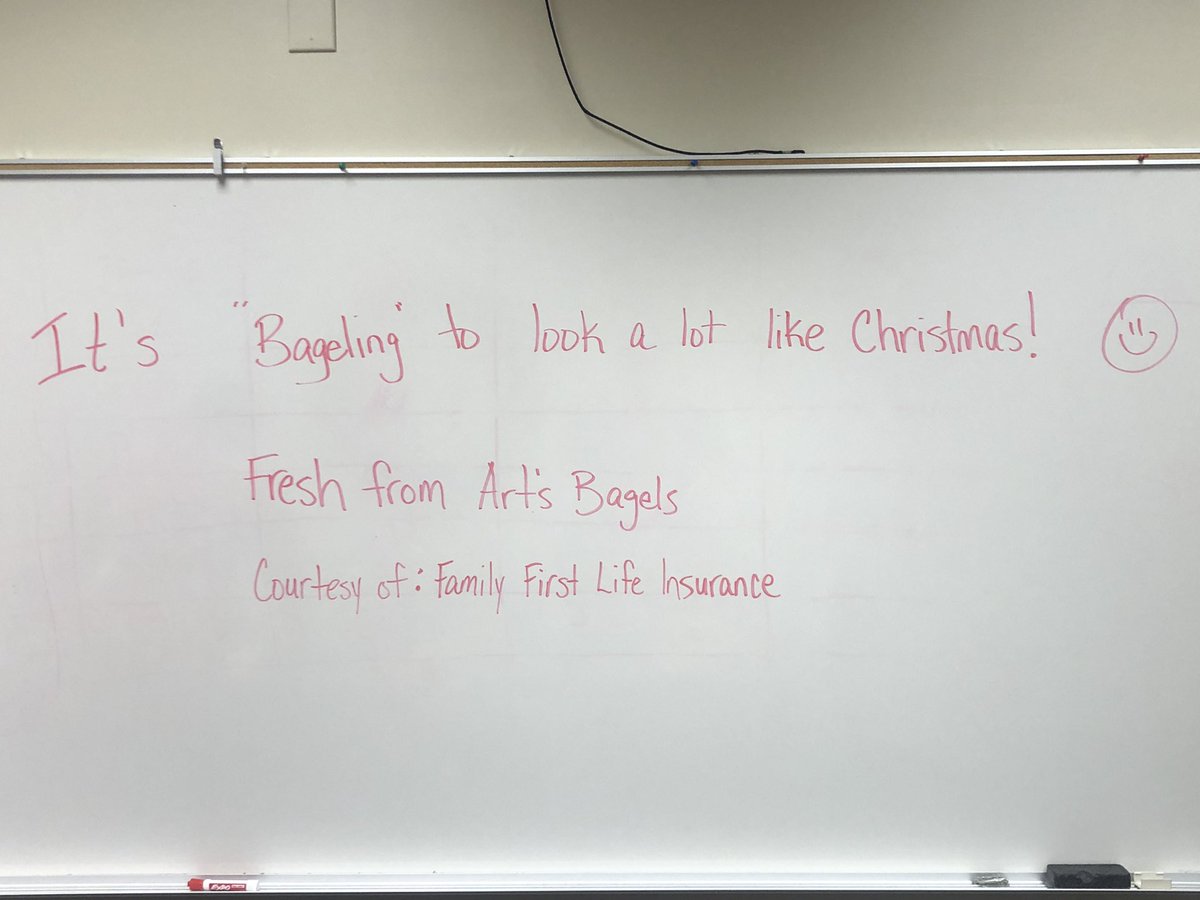 It's "Bageling" to look a lot like Christmas!
Fresh from Art's Bagels
Courtesy of: Family First Life Insurance
EXPO